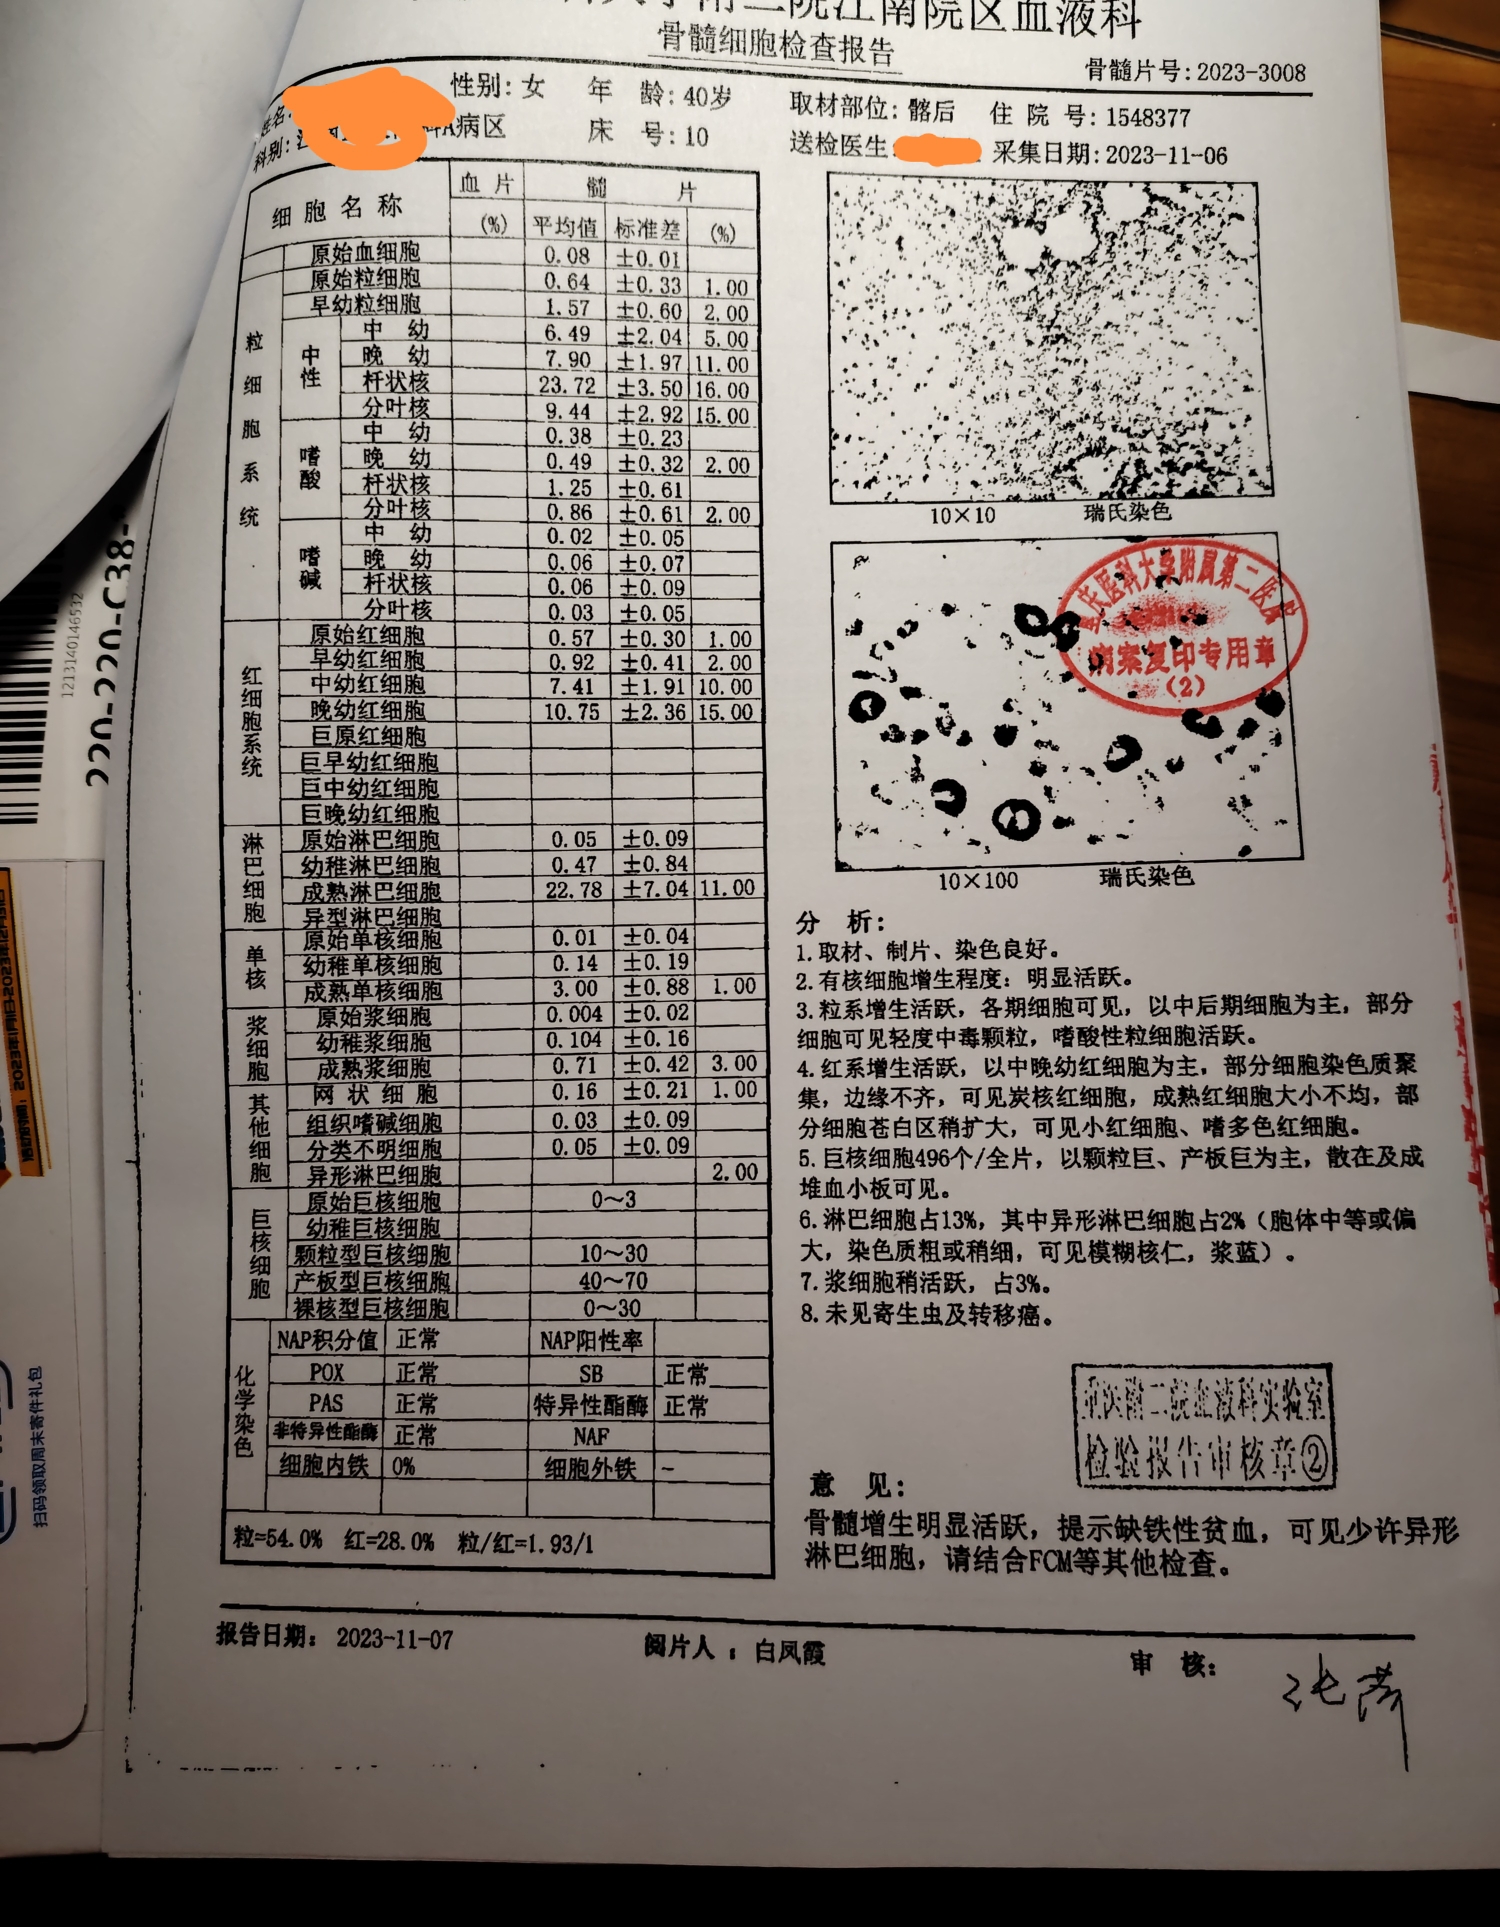 院江南院区血液科
骨髓细胞检查报告
骨髓片号:2023-3008
性别:女 年 龄:40岁 取材部位:髂后 住 院 号:1548377
科别: A病区 床 号:10 送检医生: 采集日期:2023-11-06
细胞名称 血片 髓 片
(%) 平均值 标准差 (%)
原始血细胞 0.08 ±0.01
粒细胞系统
原始粒细胞 0.64 ±0.33 1.00
早幼粒细胞 1.57 ±0.60 2.00
中性
中 幼 6.49 ±2.04 5.00
晚 幼 7.90 ±1.97 11.00
杆状核 23.72 ±3.50 16.00
分叶核 9.44 ±2.92 15.00
嗜酸
中 幼 0.38 ±0.23
晚 幼 0.49 ±0.32 2.00
杆状核 1.25 ±0.61
分叶核 0.86 ±0.61 2.00
嗜碱
中 幼 0.02 ±0.05
晚 幼 0.06 ±0.07
杆状核 0.06 ±0.09
分叶核 0.03 ±0.05
红细胞系统
原始红细胞 0.57 ±0.30 1.00
早幼红细胞 0.92 ±0.41 2.00
中幼红细胞 7.41 ±1.91 10.00
晚幼红细胞 10.75 ±2.36 15.00
巨原红细胞
巨早幼红细胞
巨中幼红细胞
巨晚幼红细胞
淋巴细胞
原始淋巴细胞 0.05 ±0.09
幼稚淋巴细胞 0.47 ±0.84
成熟淋巴细胞 22.78 ±7.04 11.00
异型淋巴细胞
单核
原始单核细胞 0.01 ±0.04
幼稚单核细胞 0.14 ±0.19
成熟单核细胞 3.00 ±0.88 1.00
浆细胞
原始浆细胞 0.004 ±0.02
幼稚浆细胞 0.104 ±0.16
成熟浆细胞 0.71 ±0.42 3.00
其他细胞
网状细胞 0.16 ±0.21 1.00
组织嗜碱细胞 0.03 ±0.09
分类不明细胞 0.05 ±0.09
异形淋巴细胞 2.00
巨核细胞
原始巨核细胞 0～3
幼稚巨核细胞
颗粒型巨核细胞 10～30
产板型巨核细胞 40～70
裸核型巨核细胞 0～30
化学染色
NAP积分值 正常 NAP阳性率
POX 正常 SB 正常
PAS 正常 特异性酯酶 正常
非特异性酯酶 正常 NAF
细胞内铁 0% 细胞外铁 -
粒=54.0% 红=28.0% 粒/红=1.93/1
10×10 瑞氏染色
医科大学附属第二医院
病案复印专用章
(2)
10×100 瑞氏染色
分 析:
1.取材、制片、染色良好。
2.有核细胞增生程度: 明显活跃。
3.粒系增生活跃, 各期细胞可见, 以中后期细胞为主, 部分
细胞可见轻度中毒颗粒, 嗜酸性粒细胞活跃。
4.红系增生活跃, 以中晚幼红细胞为主, 部分细胞染色质聚
集, 边缘不齐, 可见炭核红细胞, 成熟红细胞大小不均, 部
分细胞苍白区稍扩大, 可见小红细胞、嗜多色红细胞。
5.巨核细胞496个/全片, 以颗粒巨、产板巨为主, 散在及成
堆血小板可见。
6.淋巴细胞占13%, 其中异形淋巴细胞占2% (胞体中等或偏
大, 染色质粗或稍细, 可见模糊核仁, 浆蓝) 。
7.浆细胞稍活跃, 占3%。
8.未见寄生虫及转移癌。
重医附二院血液科实验室
检验报告审核章②
意 见:
骨髓增生明显活跃, 提示缺铁性贫血, 可见少许异形
淋巴细胞, 请结合FCM等其他检查。
报告日期: 2023-11-07 阅片人: 白凤霞 审 核:
1213140146532
220-220-C38-
扫码领取周末寄件礼包